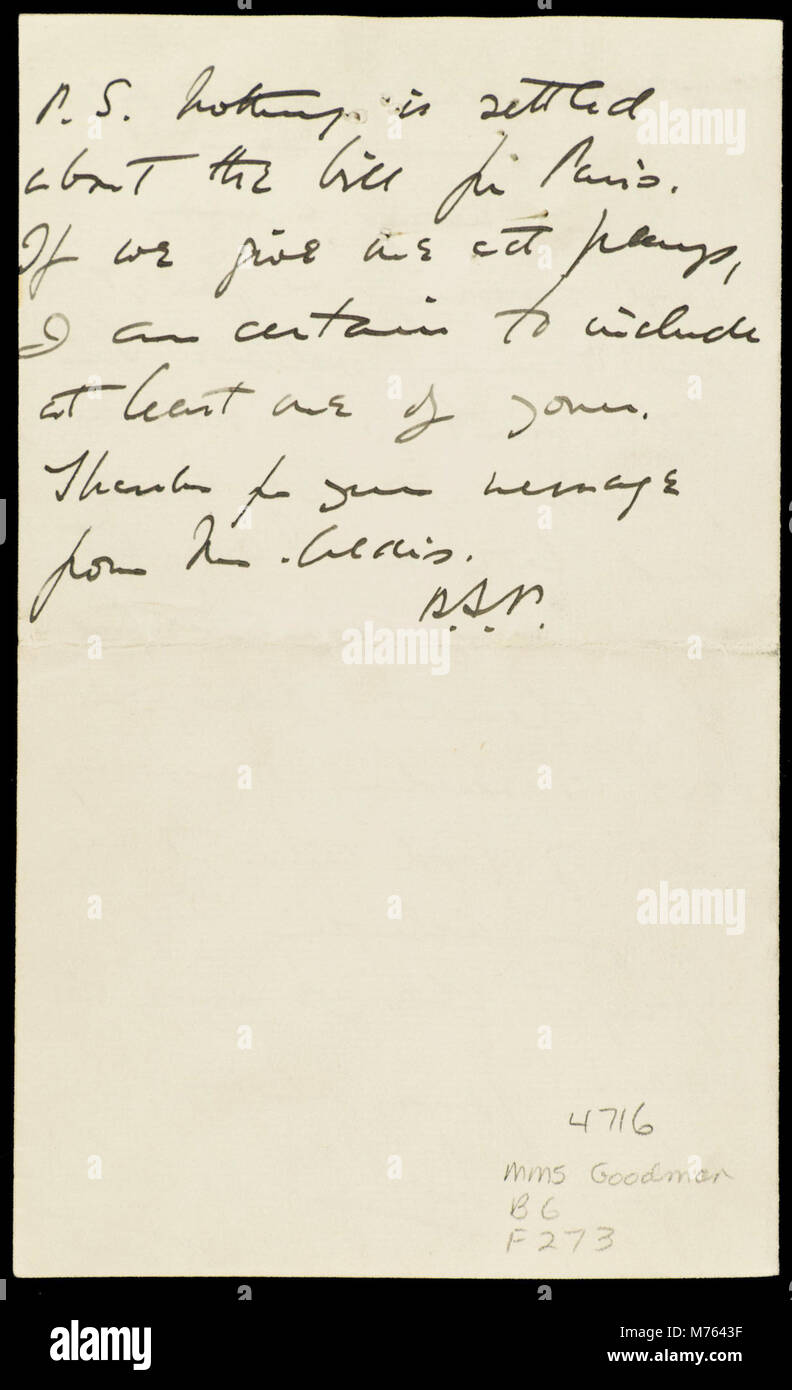 P.S. Nothing is settled
about the bill for Paris.
If we give one act plays,
I am certain to include
at least one of yours.
Thanks for your message
from Mrs. Aldis.
B.I.P.
4716
mms Goodman
B 6
F 273
alamy
alamy
alamy
alamy
M7643F
www.alamy.com